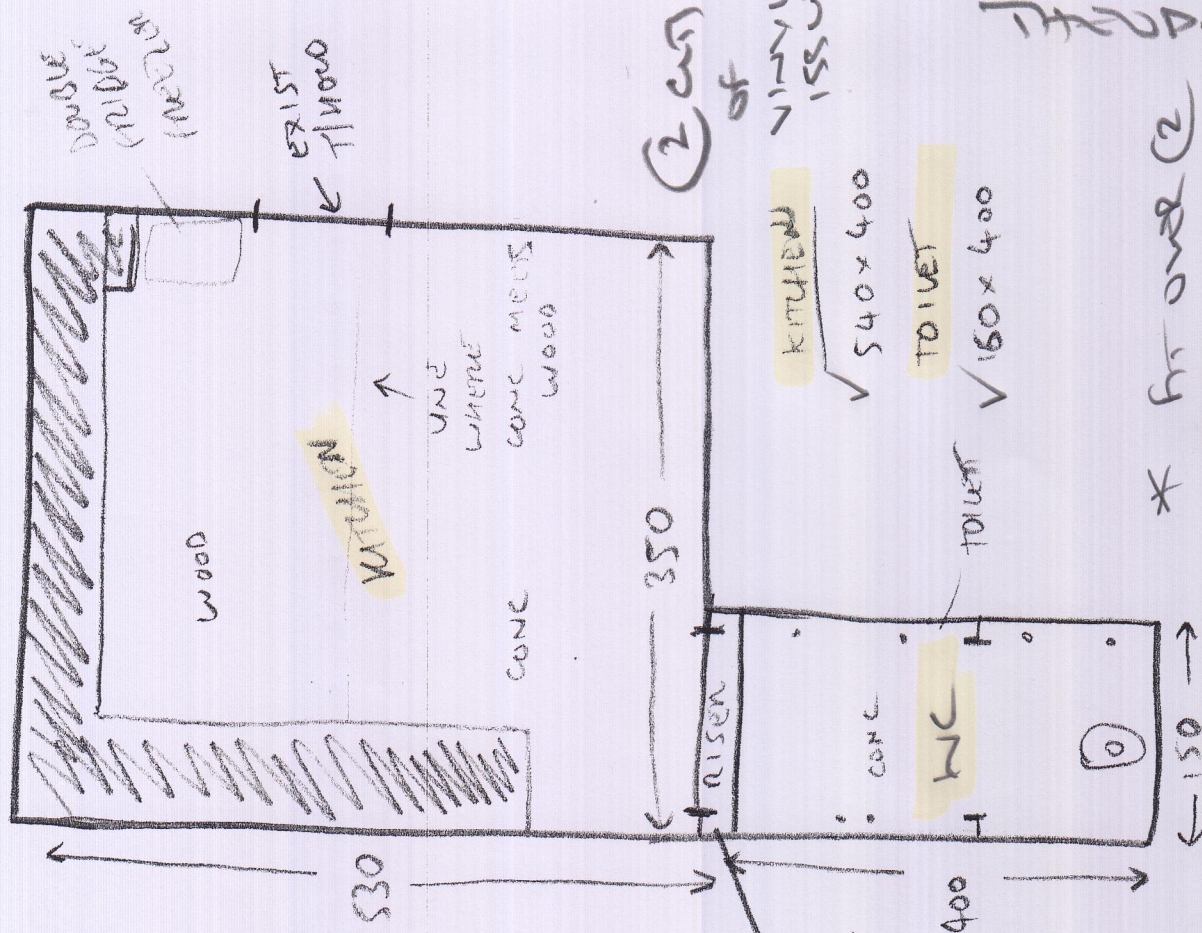 DOUBLE
FRIDGE
FREEZER
EXIST
T/HOLD
WOOD
KITCHEN
LINE
WHERE
CONC MEETS
WOOD
CONC
350
530
RISER
CONC
WC
TOILET
400
150
② CUTS
OF
KITCHEN
✓ 540 x 400
TOILET
✓ 160 x 400